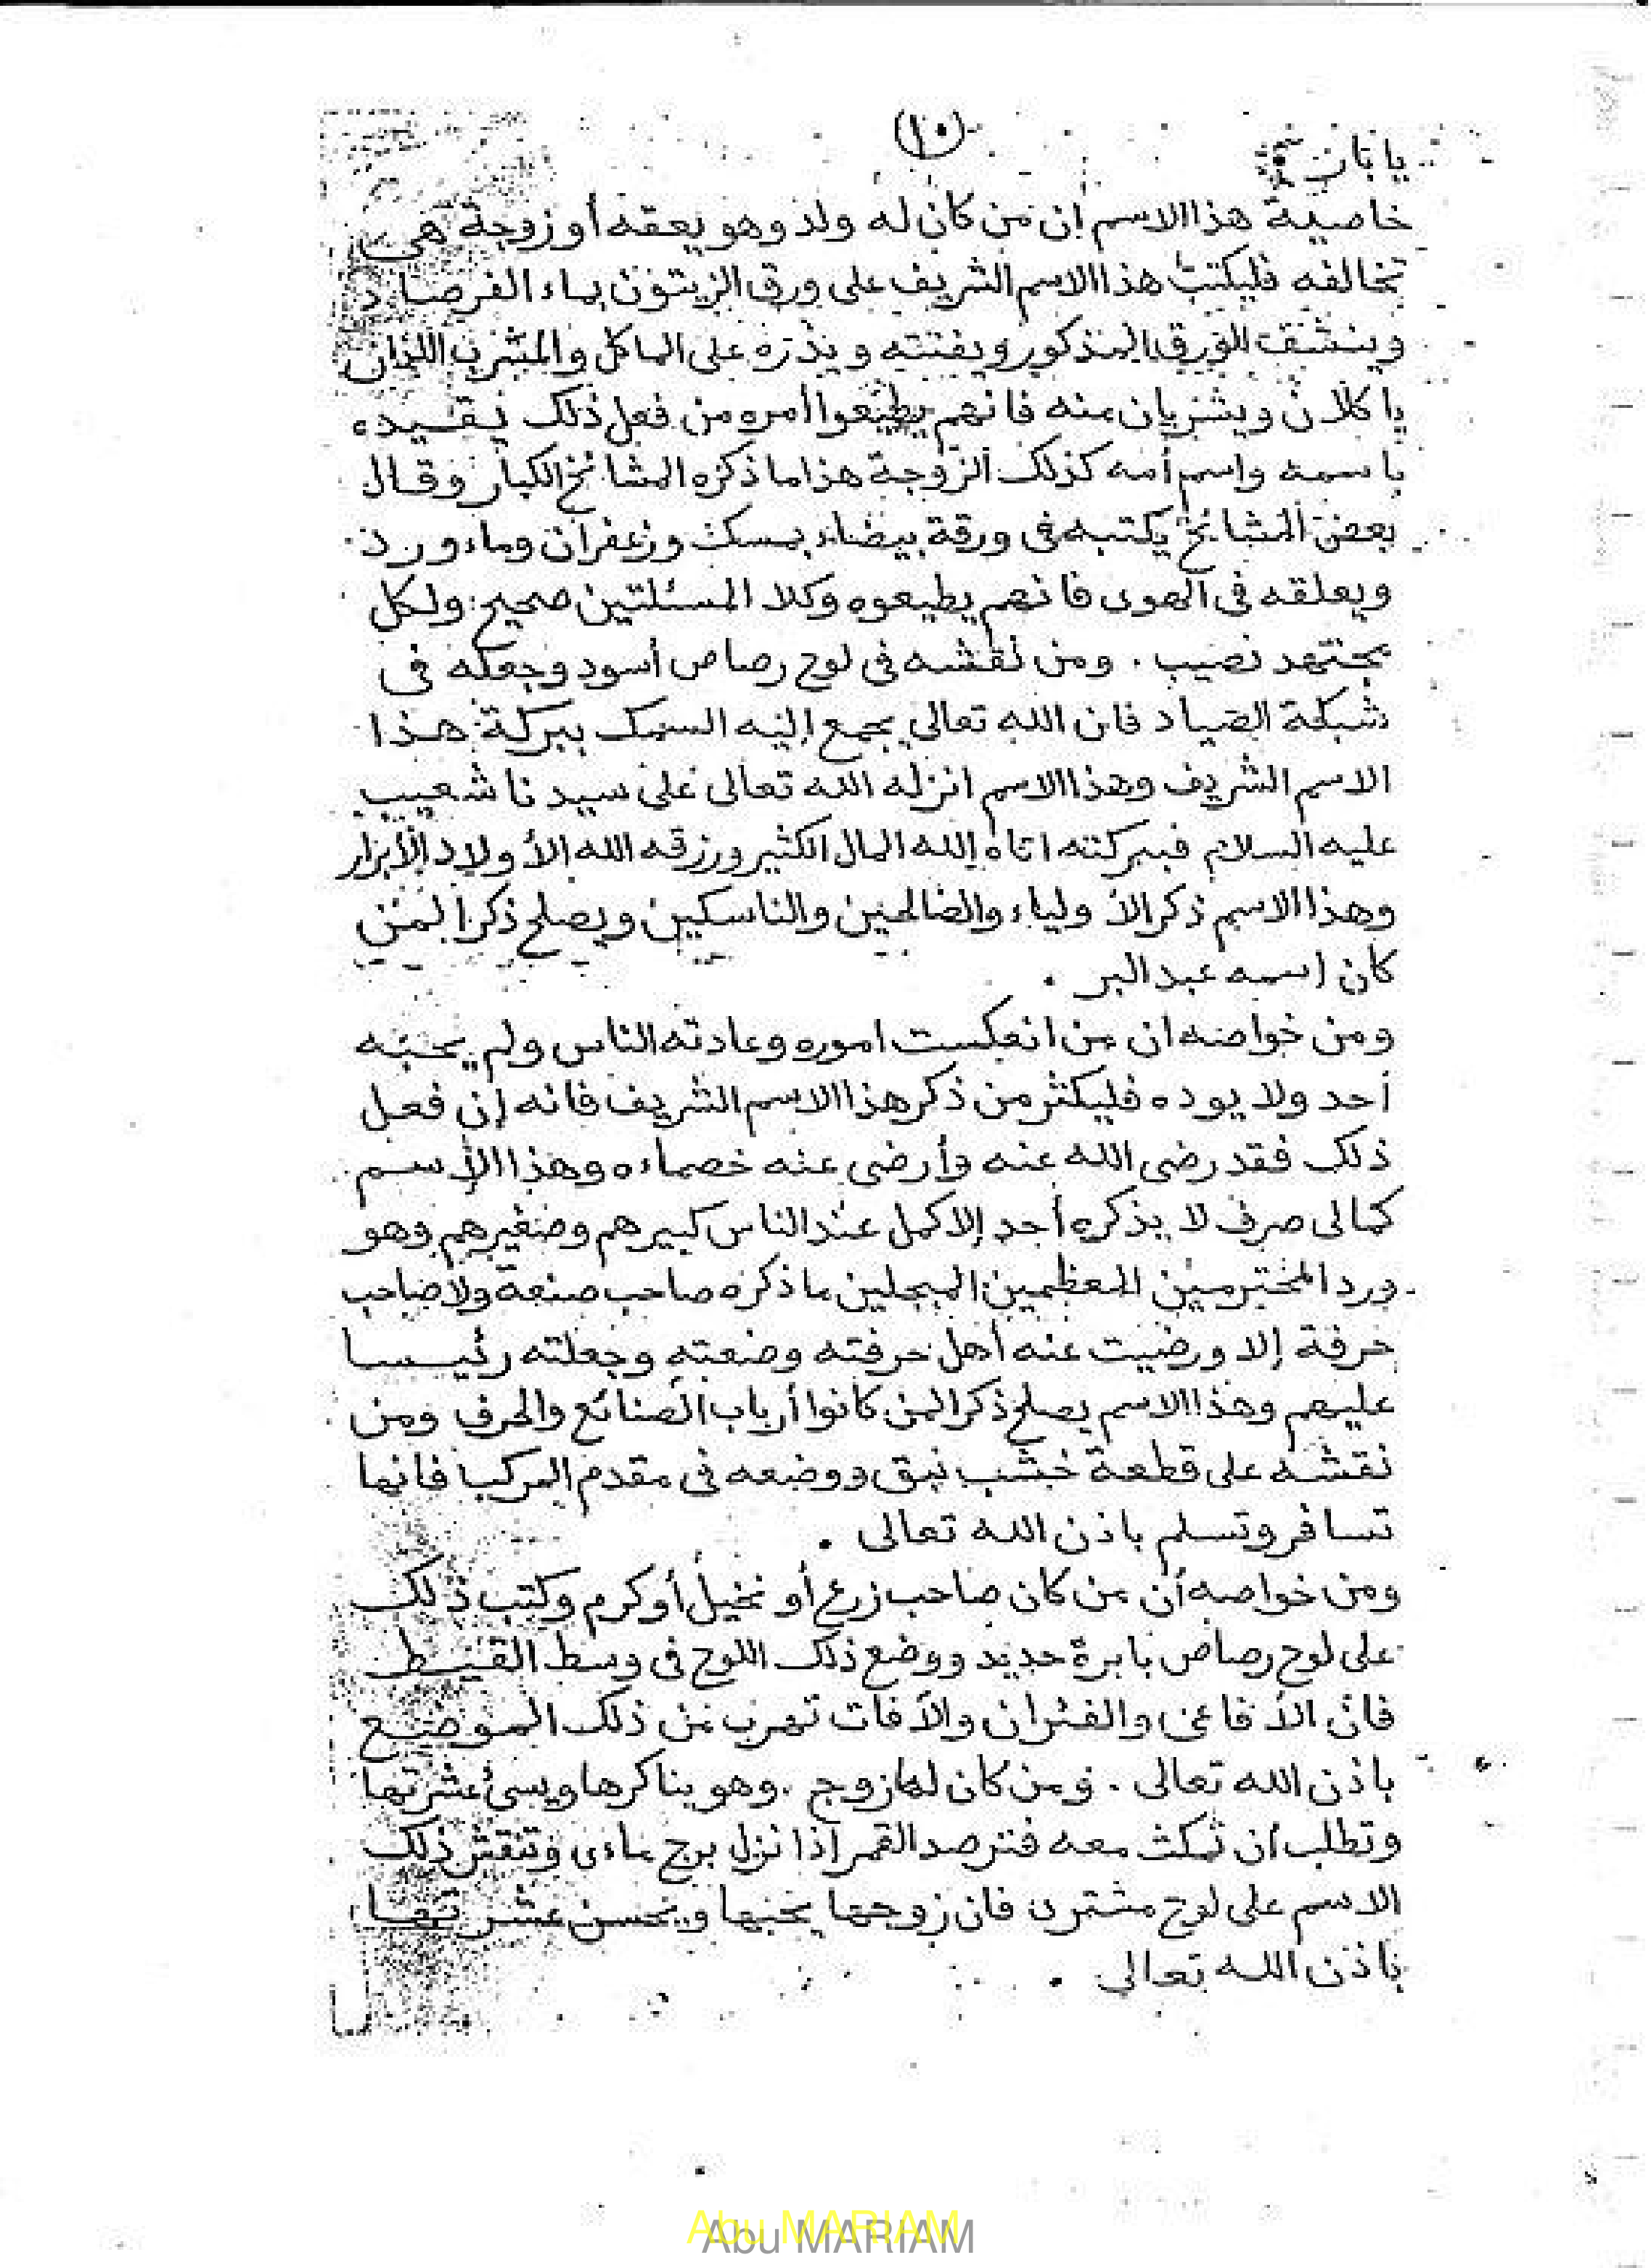 (١٠)
يا بار
خاصية هذا الاسم إن من كان له ولد وهو يعقه أو زوجة هى
تخالفه فليكتب هذا الاسم الشريف على ورق الزيتون بماء الفرصاد
وينشف الورق المذكور ويفتته ويذره على الماكل والمشرب اللذان
ياكلان ويشربان منه فانهم يطيعوا أمره من فعل ذلك نقيده
باسمه واسم أمه كذلك الزوجة هذا ما ذكره المشائخ الكبار وقال
بعض المشائخ يكتبه فى ورقة بيضاء بمسك وزعفران وماء ورد
ويعلقه فى الهوى فانهم يطيعوه وكلا المسئلتين صحيح ولكل
مجتهد نصيب . ومن نقشه فى لوح رصاص أسود وجعله فى
شبكة الصياد فان الله تعالى يجمع إليه السمك ببركة هذا
الاسم الشريف وهذا الاسم انزله الله تعالى على سيدنا شعيب
عليه السلام فببركته اتاه الله المال الكثير ورزقه الله الأولاد الأبرار
وهذا الاسم ذكر الأولياء والصالحين والناسكين ويصلح ذكرا لمن
كان اسمه عبد البر .
ومن خواصه ان من انعكست اموره وعادته الناس ولم يحبه
أحد ولا يوده فليكثر من ذكر هذا الاسم الشريف فانه إن فعل
ذلك فقد رضى الله عنه وأرضى عنه خصماءه وهذا الاسم
كمالى صرف لا يذكره أحد إلا كمل عند الناس كبيرهم وصغيرهم وهو
ورد المحترمين المعظمين المبجلين ما ذكره صاحب صنعة ولا صاحب
حرفة إلا ورضيت عنه أهل حرفته وصنعته وجعلته رئيسا
عليهم وهذا الاسم يصلح ذكرا لمن كانوا أرباب الصنائع والحرف ومن
نقشه على قطعة خشب نبق ووضعه فى مقدم المركب فانها
تسافر وتسلم باذن الله تعالى .
ومن خواصه أن من كان صاحب زرع أو نخيل أو كرم وكتب ذلك
على لوح رصاص بابرة حديد ووضع ذلك اللوح فى وسط الغيط
فان الأفاعى والفئران والآفات تهرب من ذلك الموضع
باذن الله تعالى . ومن كان لها زوج . وهو يناكرها ويسئ عشرتها
وتطلب أن تمكث معه فترصد القمر اذا نزل برج ماءى وتنقش ذلك
الاسم على لوح مشترى فان زوجها يحبها ويحسن عشرتها
باذن الله تعالى .
Abu MARIAM